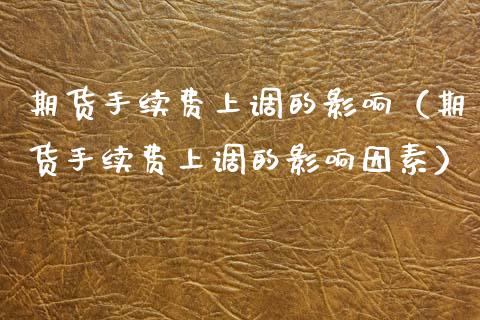 期货手续费上调的影响（期
货手续费上调的影响因素）